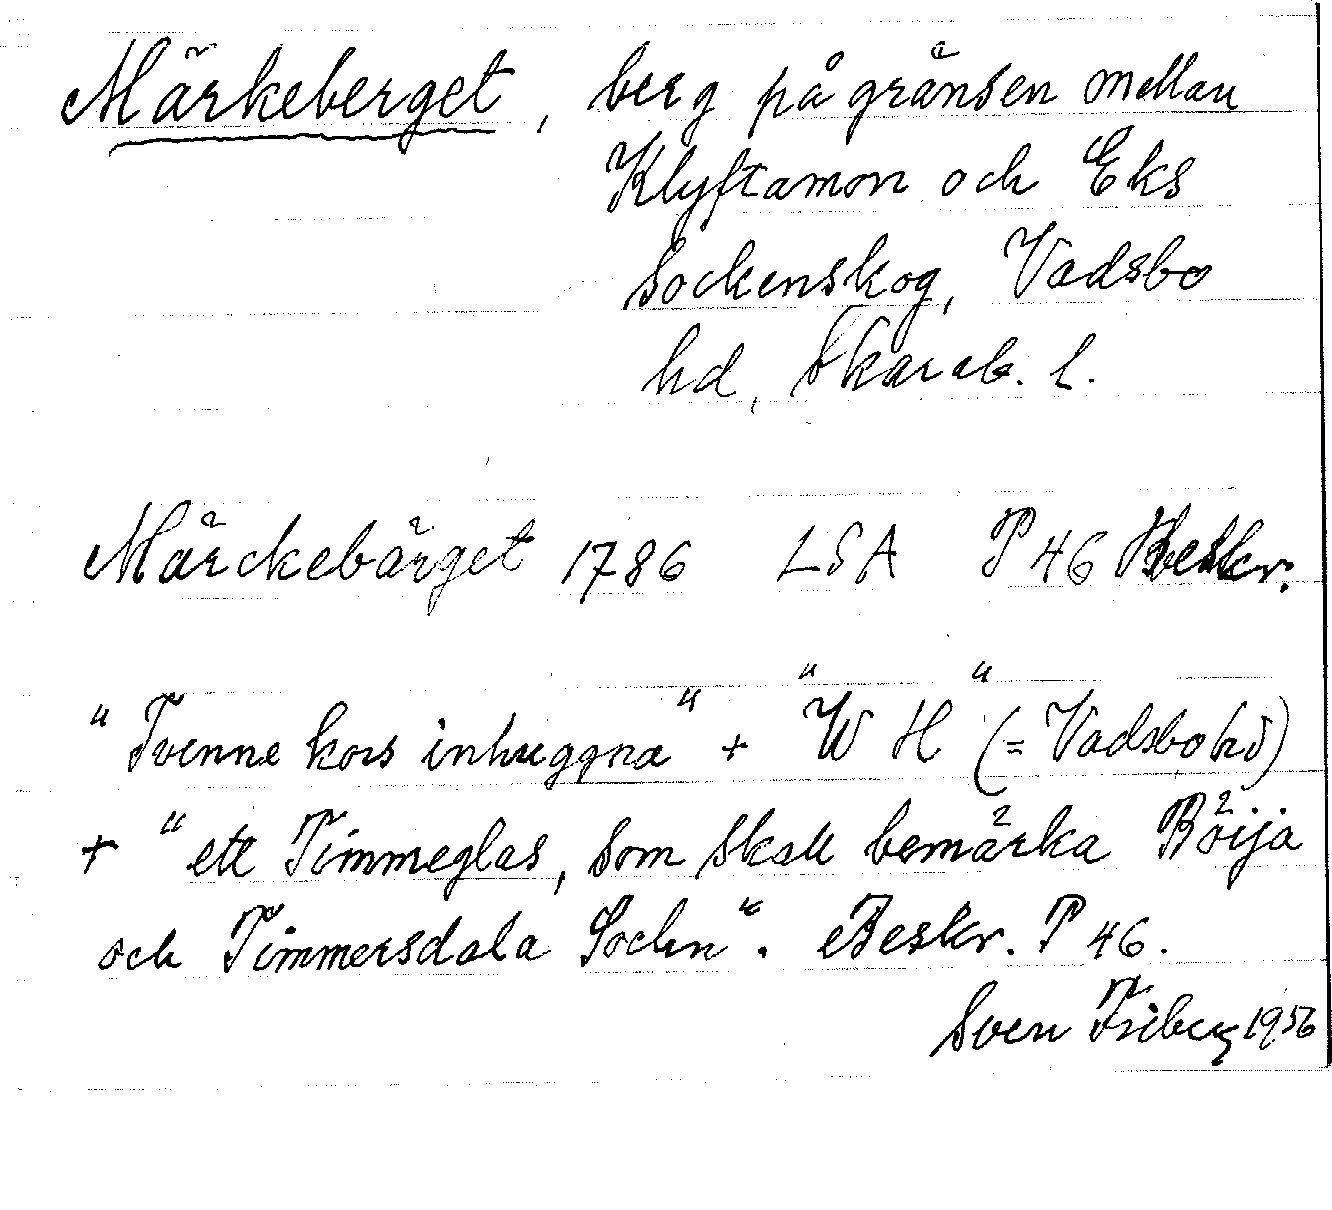 Märkeberget, berg på gränsen mellan
Klyftamon och Eks
sockenskog, Vadsbo
hd, Skarab. l.
Märckebärget 1786 LSA P 46 Beskr.
"Tvenne kors inhuggna" + "W H" (= Vadsbo hd)
+ "ett Timmeglas, som skall bemärka Böija
och Timmersdala Sochn". Beskr. P 46.
Sven Friberg 1956